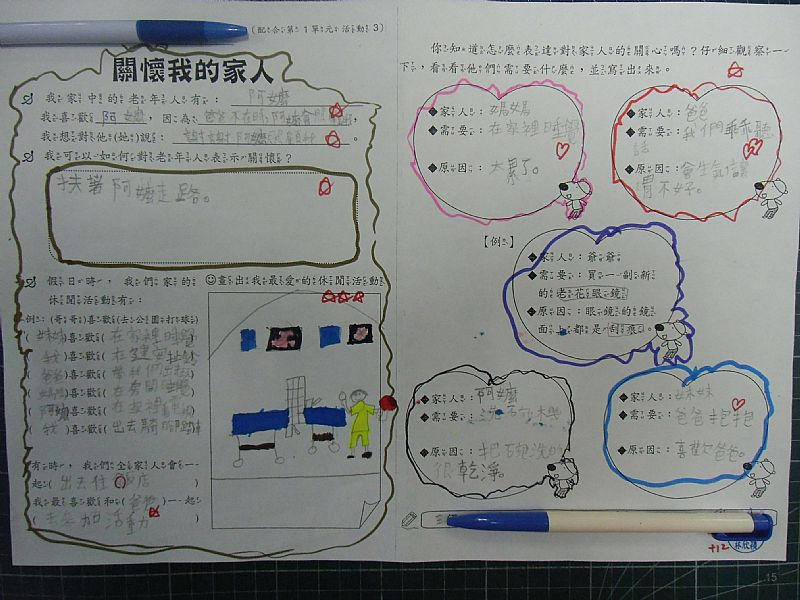 (配合第1單元活動3)
關懷我的家人
我家中的老年人有：阿嬤
我喜歡阿嬤，因為
我想對他(她)說：
我可以如何對老年人表示關懷？
扶著阿嬤走路。
假日時，我們家的
休閒活動有：
例：(哥哥)喜歡(去公園打球)
(妹妹)喜歡(在家裡睡覺)
喜歡(在
(爸爸)喜歡(帶我們出去
(媽媽)喜歡(在房間睡覺
(阿嬤)喜歡(在家裡看電
(我)喜歡(出去騎腳踏車
有時，我們全家人會一
起(出去住飯店)
我最喜歡和(爸爸)一起
(去參加活動)
畫出我最愛的休閒活動
你知道怎麼表達對家人的關心嗎？仔細觀察一
下，看看他們需要什麼，並寫出來。
家人：媽媽
需要：在家裡睡覺
原因：太累了。
家人：爸爸
需要：我們乖乖聽
話
原因：會生氣
不好。
【例】
家人：爺爺
需要：買一副新
的老花眼鏡
原因：眼鏡的鏡
面上都是刮痕。
家人：阿嬤
需要：洗碗
原因：把碗洗的
很乾淨。
家人：妹妹
需要：爸爸抱抱
原因：喜歡爸爸。
+12
15